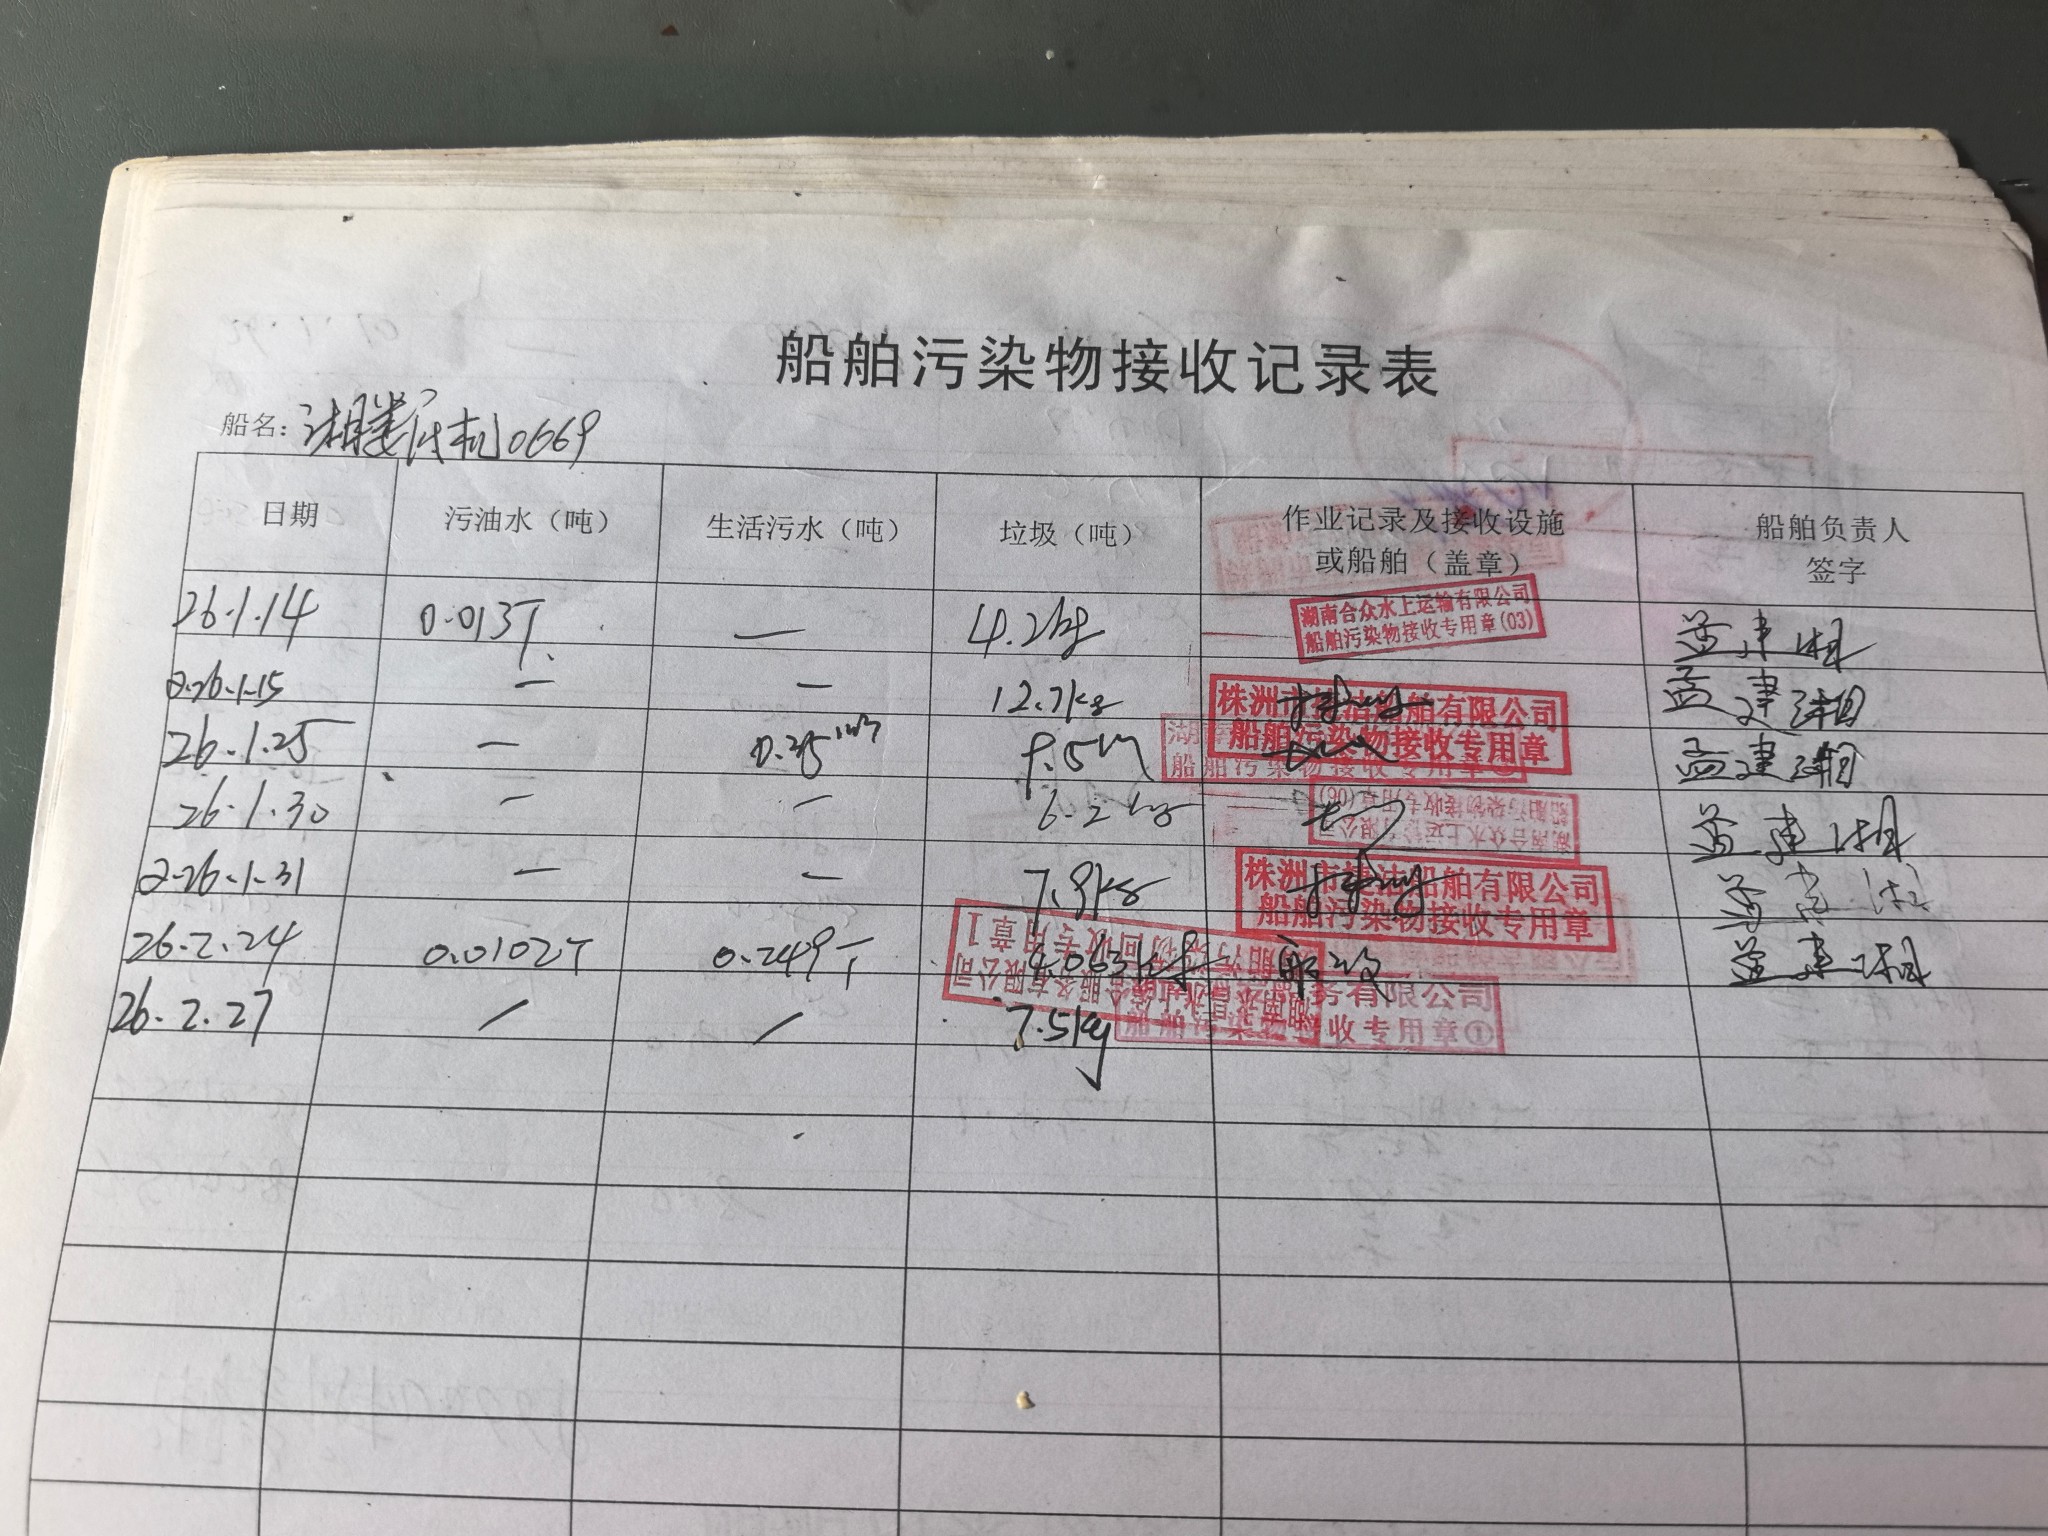 船舶污染物接收记录表
船名：湘娄底机0669
日期 污油水（吨） 生活污水（吨） 垃圾（吨） 作业记录及接收设施或船舶（盖章） 船舶负责人签字
26.1.14 0.013T — 4.2kg 孟建湘
湖南合众水上运输有限公司
船舶污染物接收专用章(03)
2026.1.15 — — 12.7kg 孟建湘
株洲市捷洁船舶有限公司
船舶污染物接收专用章
26.1.25 — 0.35 孟建湘
26.1.30 — — 6.2kg 孟建湘
2026.1.31 — — 7.9kg 孟建湘
株洲市捷洁船舶有限公司
船舶污染物接收专用章
26.2.24 0.0102T 0.249T 孟建湘
26.2.27 / / 7.5kg
务有限公司
收专用章①